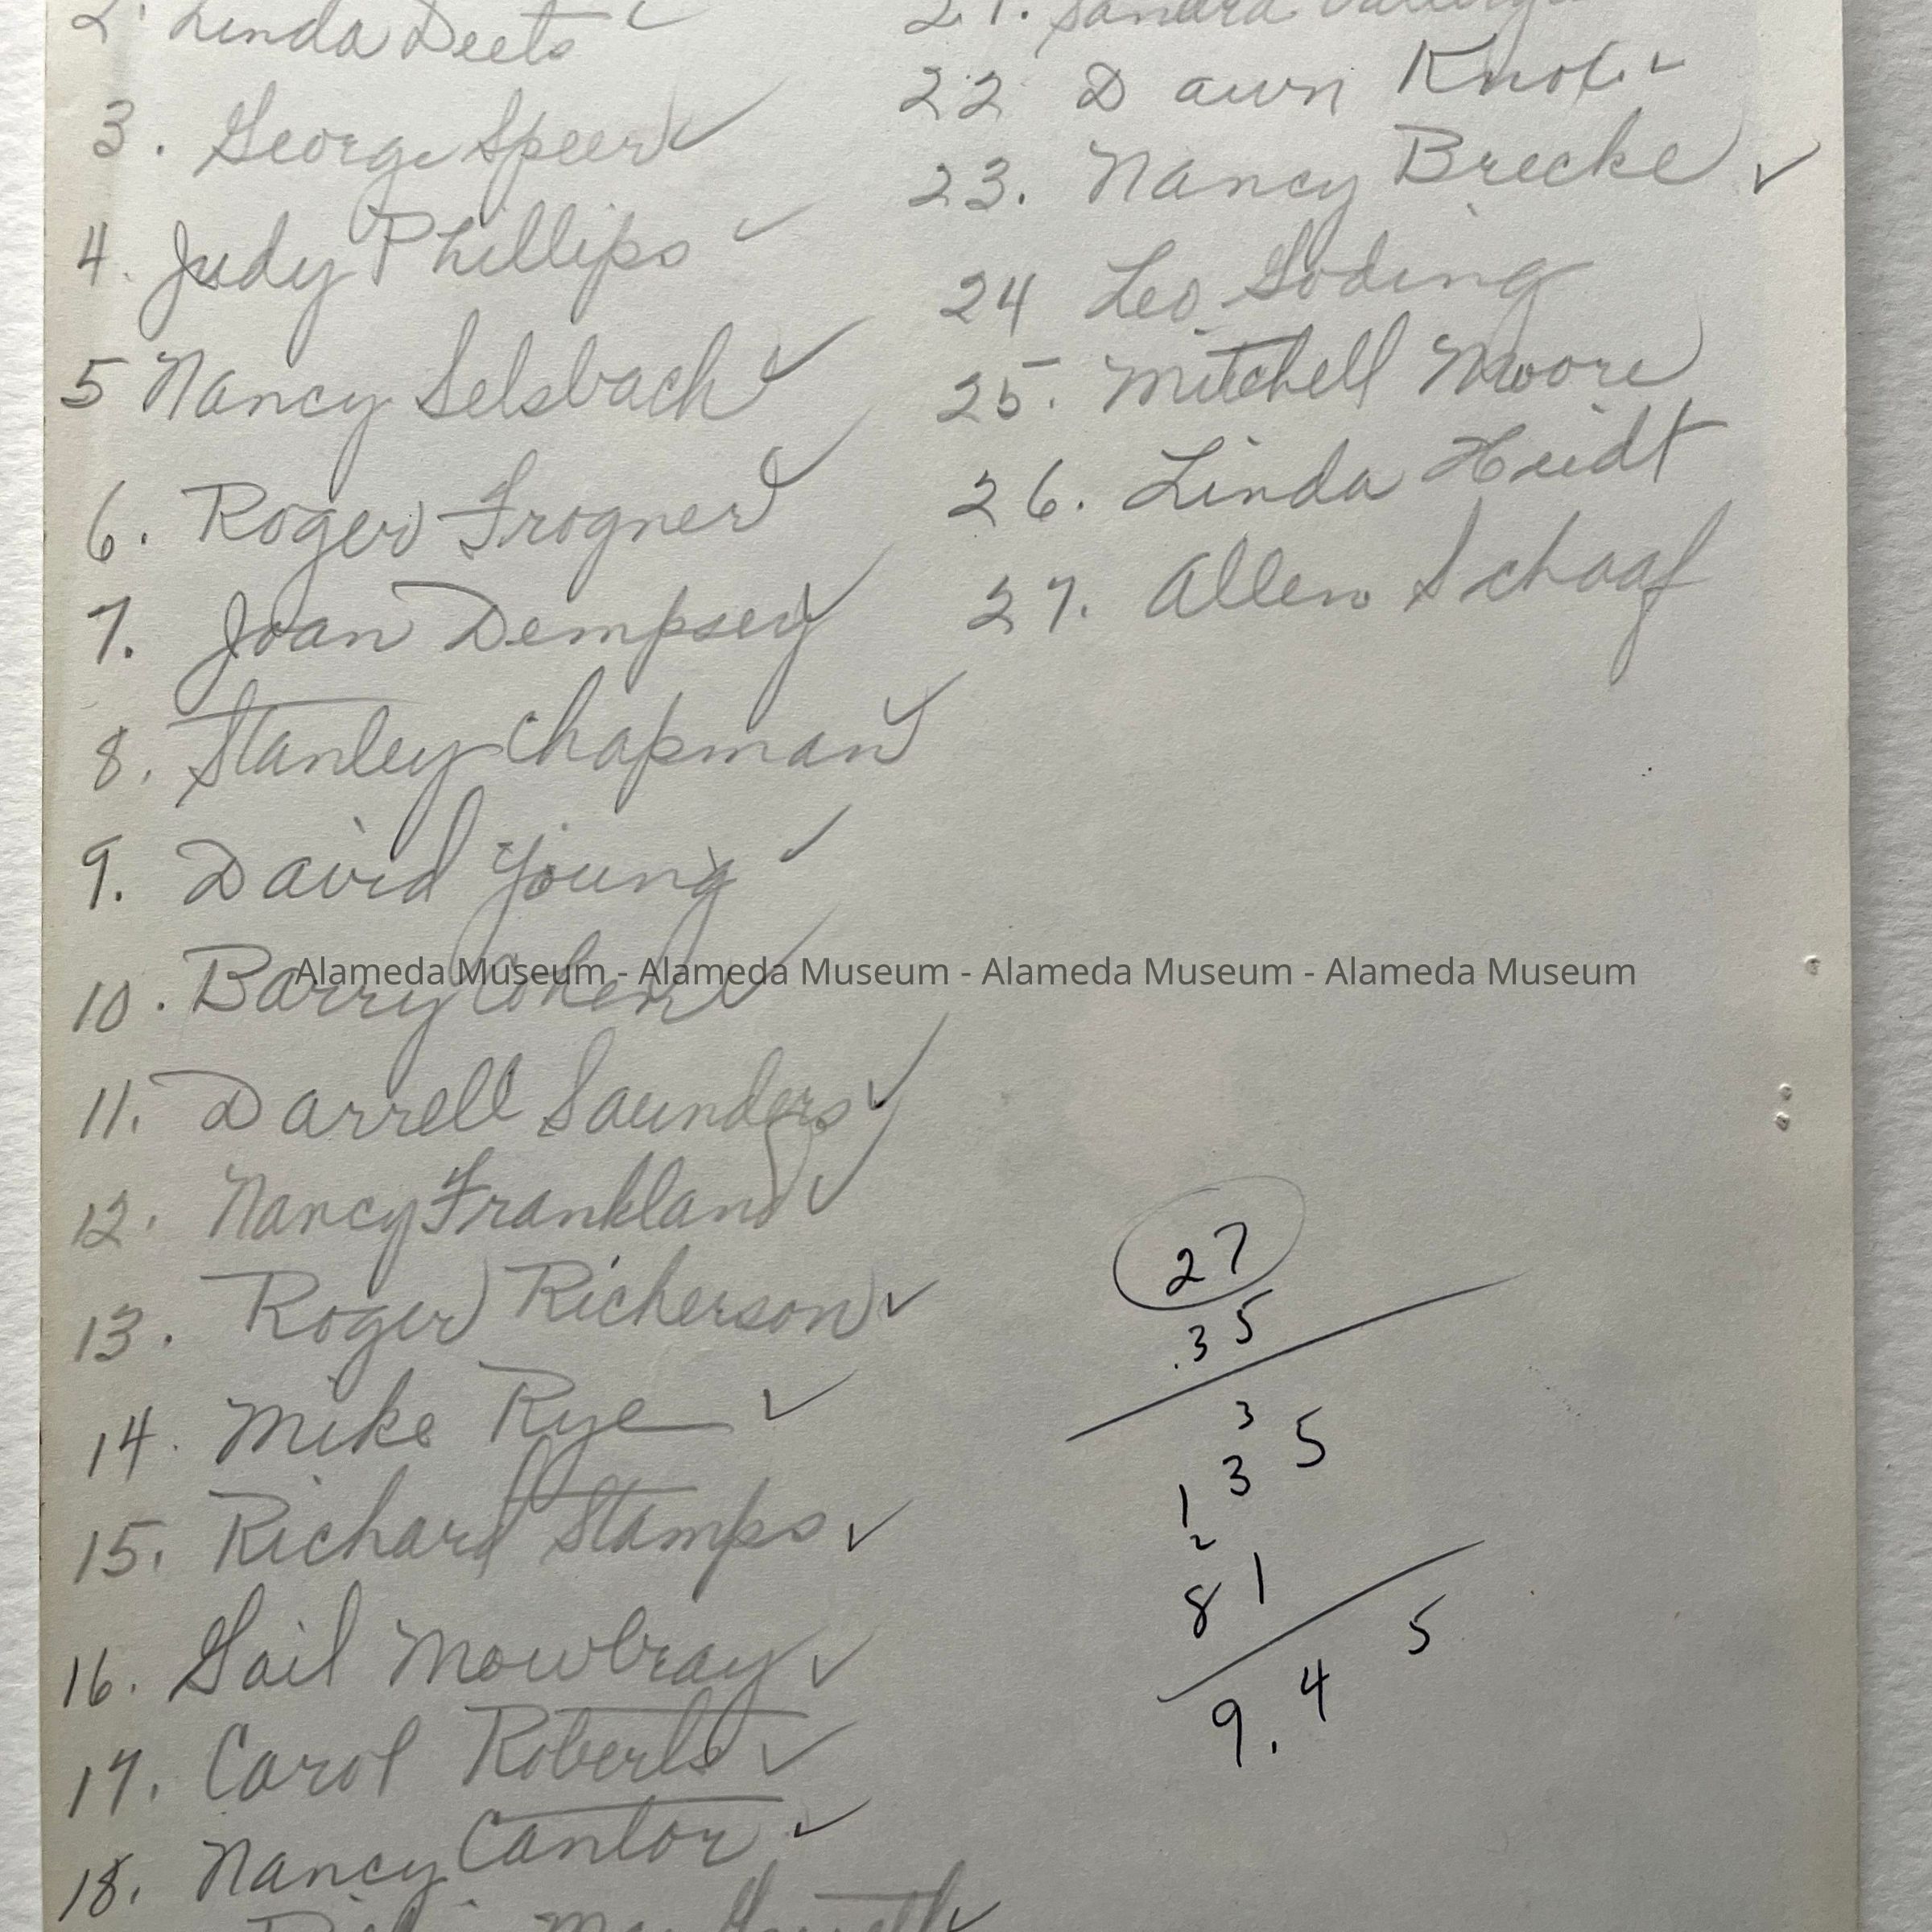 2. Linda Deets ✓
3. George Speer ✓
4. Judy Phillips ✓
5 Nancy Selsbach ✓
6. Roger Frogner ✓
7. Joan Dempsey ✓
8. Stanley Chapman ✓
9. David Young ✓
10. Barry Cohen ✓
11. Darrell Saunders ✓
12. Nancy Frankland ✓
13. Roger Richerson ✓
14. Mike Rye ✓
15. Richard Stamps ✓
16. Gail Mowbray ✓
17. Carol Roberts ✓
18. Nancy Cantor ✓
21. Sandra
22 Dawn ✓
23. Nancy Brecke ✓
24 Leo Goding
25. Mitchell Moore
26. Linda Heidt
27. Allen Schaaf
27
.35
3
135
2
81
9.45
Alameda Museum - Alameda Museum - Alameda Museum - Alameda Museum